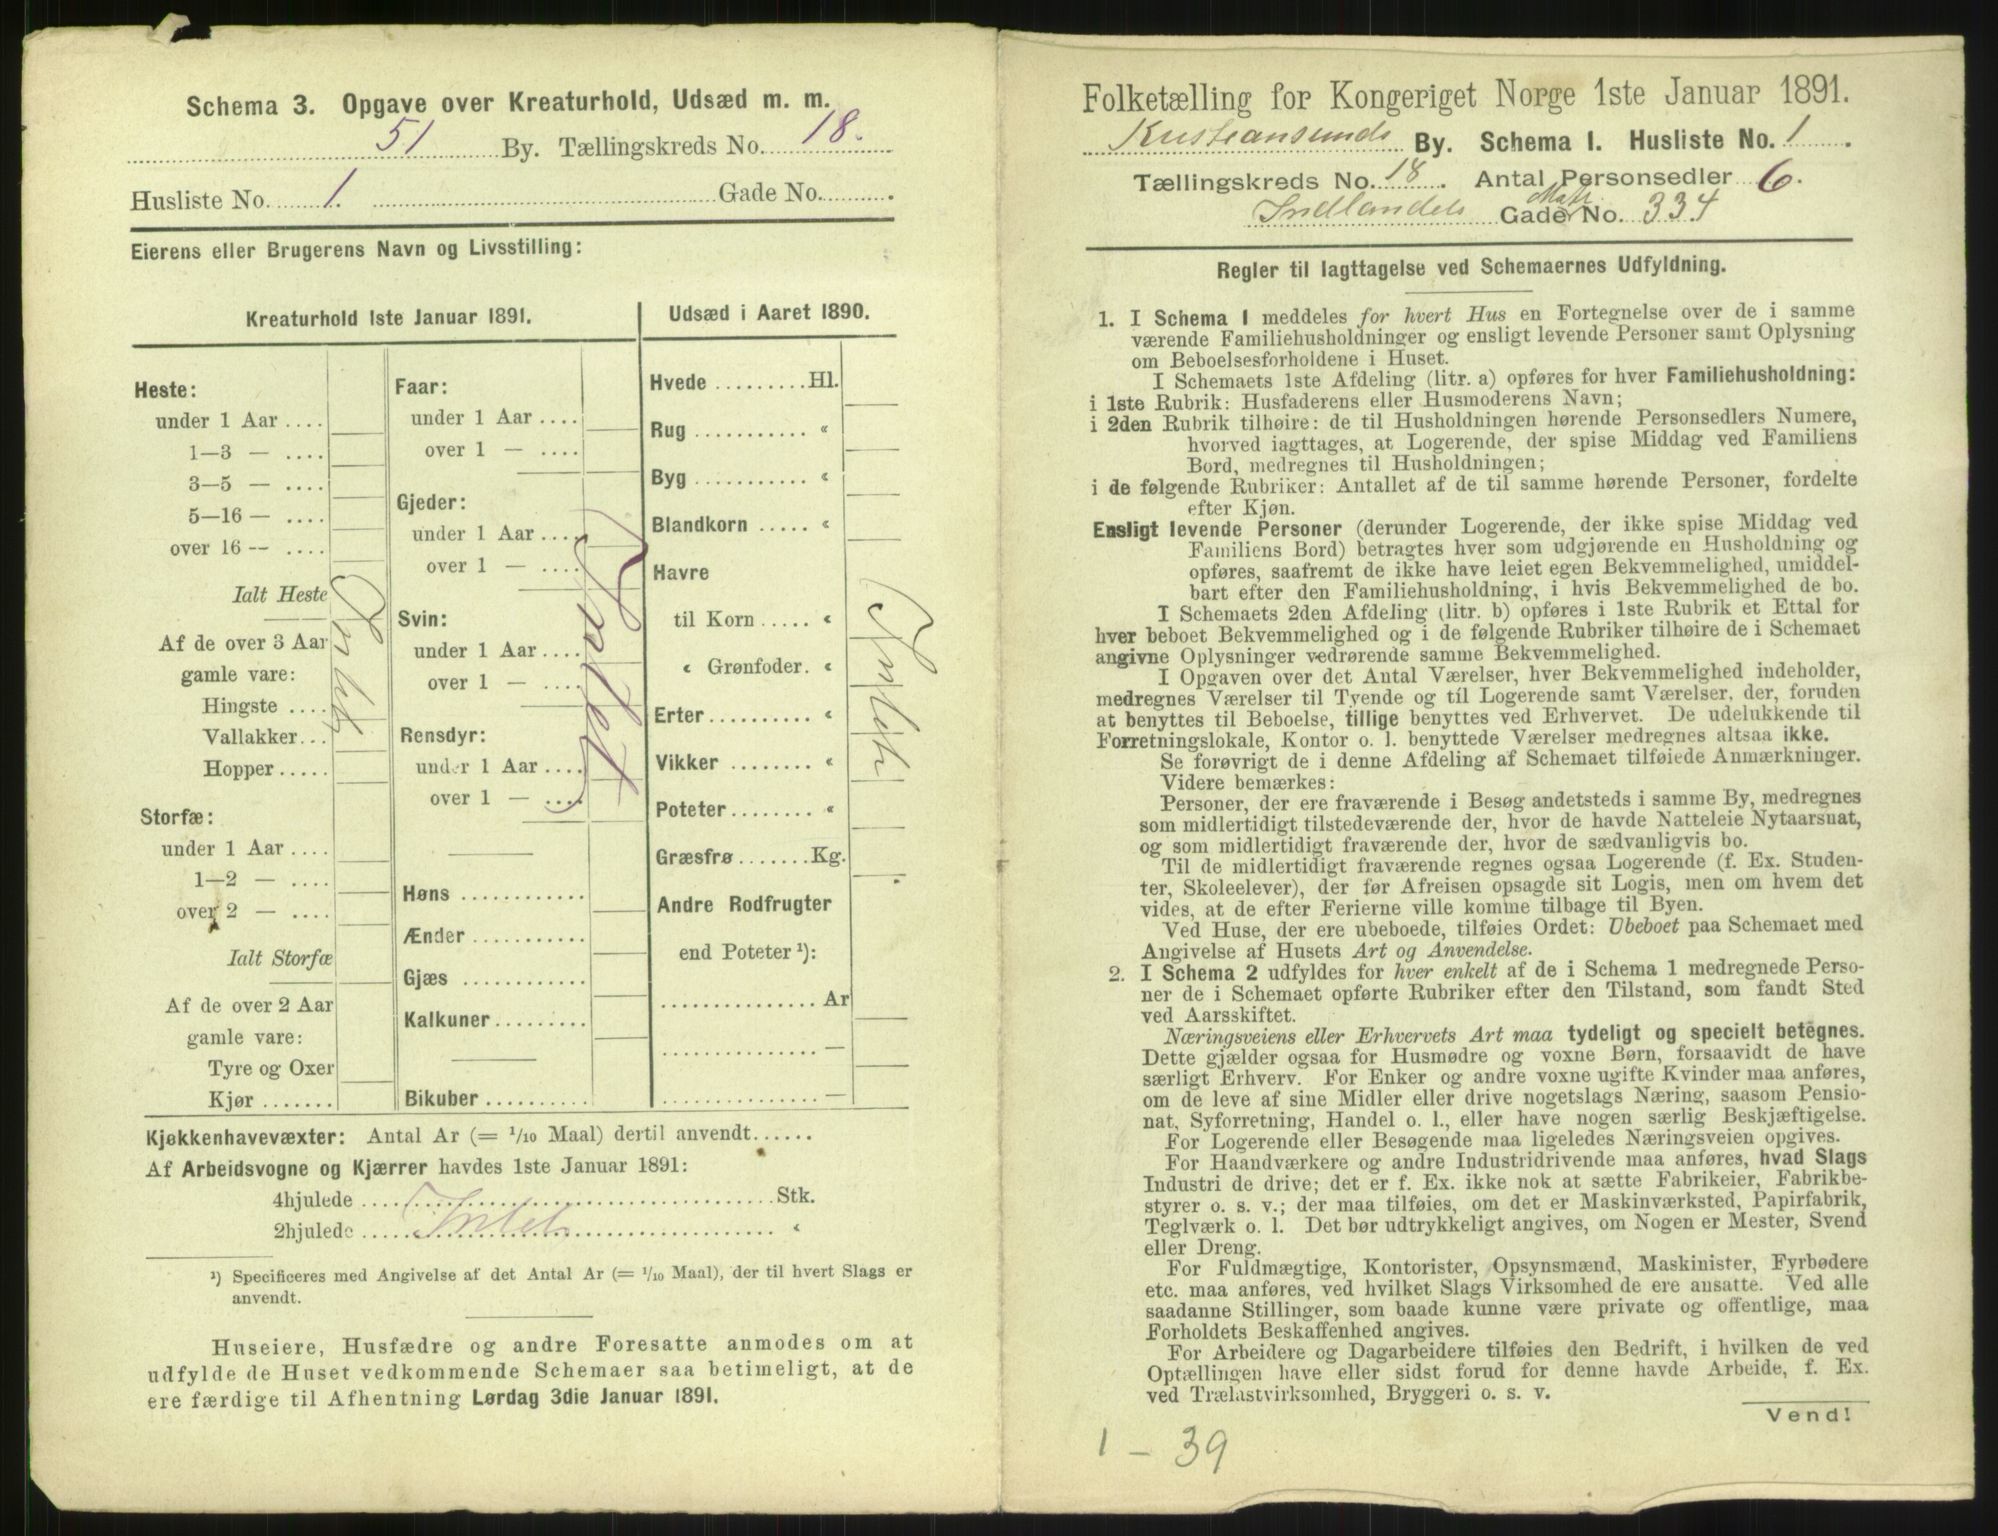 Schema 3. Opgave over Kreaturhold, Udsæd m. m.
51 By. Tællingskreds No. 18.
Husliste No. 1. Gade No. .
Eierens eller Brugerens Navn og Livsstilling:
Kreaturhold 1ste Januar 1891.
Heste:
under 1 Aar ....
1—3 — ....
3—5 — ....
5—16 — ....
over 16 -- ....
Ialt Heste
Af de over 3 Aar
gamle vare:
Hingste ....
Vallakker...
Hopper.....
Storfæ:
under 1 Aar ....
1—2 — ....
over 2 — ....
Ialt Storfæ
Af de over 2 Aar
gamle vare:
Tyre og Oxer
Kjør .......
Intet
Faar:
under 1 Aar ....
over 1 — ....
Gjeder:
under 1 Aar ....
over 1 — ....
Svin:
under 1 Aar ....
over 1 — ....
Rensdyr:
under 1 Aar ....
over 1 — ....
Høns ............
Ænder ...........
Gjæs ............
Kalkuner.........
Bikuber ..........
Intet
Udsæd i Aaret 1890.
Hvede .........Hl.
Rug ........... «
Byg ........... «
Blandkorn ..... «
Havre
til Korn ..... «
« Grønfoder. «
Erter.......... «
Vikker ........ «
Poteter ........ «
Græsfrø .......Kg.
Andre Rodfrugter
end Poteter ¹):
............... Ar
............... —
............... —
Intet
Kjøkkenhavevæxter: Antal Ar (= 1/10 Maal) dertil anvendt......
Af Arbeidsvogne og Kjærrer havdes 1ste Januar 1891:
4hjulede ........ Stk.
2hjulede ..... Intet ..... «
¹) Specificeres med Angivelse af det Antal Ar (= 1/10 Maal), der til hvert Slags er
anvendt.
Huseiere, Husfædre og andre Foresatte anmodes om at
udfylde de Huset vedkommende Schemaer saa betimeligt, at de
ere færdige til Afhentning Lørdag 3die Januar 1891.
Folketælling for Kongeriget Norge 1ste Januar 1891.
Kristiansunds By. Schema I. Husliste No. 1.
Tællingskreds No. 18. Antal Personsedler 6.
Matr.
Indlandets Gade No. 334
Regler til Iagttagelse ved Schemaernes Udfyldning.
1. I Schema 1 meddeles for hvert Hus en Fortegnelse over de i samme
værende Familiehusholdninger og ensligt levende Personer samt Oplysning
om Beboelsesforholdene i Huset.
I Schemaets 1ste Afdeling (litr. a) opføres for hver Familiehusholdning:
i 1ste Rubrik: Husfaderens eller Husmoderens Navn;
i 2den Rubrik tilhøire: de til Husholdningen hørende Personsedlers Numere,
hvorved iagttages, at Logerende, der spise Middag ved Familiens
Bord, medregnes til Husholdningen;
i de følgende Rubriker: Antallet af de til samme hørende Personer, fordelte
efter Kjøn.
Ensligt levende Personer (derunder Logerende, der ikke spise Middag ved
Familiens Bord) betragtes hver som udgjørende en Husholdning og
opføres, saafremt de ikke have leiet egen Bekvemmelighed, umiddel-
bart efter den Familiehusholdning, i hvis Bekvemmelighed de bo.
I Schemaets 2den Afdeling (litr. b) opføres i 1ste Rubrik et Ettal for
hver beboet Bekvemmelighed og i de følgende Rubriker tilhøire de i Schemaet
angivne Oplysninger vedrørende samme Bekvemmelighed.
I Opgaven over det Antal Værelser, hver Bekvemmelighed indeholder,
medregnes Værelser til Tyende og til Logerende samt Værelser, der, foruden
at benyttes til Beboelse, tillige benyttes ved Erhvervet. De udelukkende til
Forretningslokale, Kontor o. l. benyttede Værelser medregnes altsaa ikke.
Se forøvrigt de i denne Afdeling af Schemaet tilføiede Anmærkninger.
Videre bemærkes:
Personer, der ere fraværende i Besøg andetsteds i samme By, medregnes
som midlertidigt tilstedeværende der, hvor de havde Natteleie Nytaarsnat,
og som midlertidigt fraværende der, hvor de sædvanligvis bo.
Til de midlertidigt fraværende regnes ogsaa Logerende (f. Ex. Studen-
ter, Skoleelever), der før Afreisen opsagde sit Logis, men om hvem det
vides, at de efter Ferierne ville komme tilbage til Byen.
Ved Huse, der ere ubeboede, tilføies Ordet: Ubeboet paa Schemaet med
Angivelse af Husets Art og Anvendelse.
2. I Schema 2 udfyldes for hver enkelt af de i Schema 1 medregnede Perso-
ner de i Schemaet opførte Rubriker efter den Tilstand, som fandt Sted
ved Aarsskiftet.
Næringsveiens eller Erhvervets Art maa tydeligt og specielt betegnes.
Dette gjælder ogsaa for Husmødre og voxne Børn, forsaavidt de have
særligt Erhverv. For Enker og andre voxne ugifte Kvinder maa anføres,
om de leve af sine Midler eller drive nogetslags Næring, saasom Pensio-
nat, Syforretning, Handel o. l., eller have nogen særlig Beskjæftigelse.
For Logerende eller Besøgende maa ligeledes Næringsveien opgives.
For Haandværkere og andre Industridrivende maa anføres, hvad Slags
Industri de drive; det er f. Ex. ikke nok at sætte Fabrikeier, Fabrikbe-
styrer o. s. v.; der maa tilføies, om det er Maskinværksted, Papirfabrik,
Teglværk o. l. Det bør udtrykkeligt angives, om Nogen er Mester, Svend
eller Dreng.
For Fuldmægtige, Kontorister, Opsynsmænd, Maskinister, Fyrbødere
etc. maa anføres, ved hvilket Slags Virksomhed de ere ansatte. Ved alle
saadanne Stillinger, som baade kunne være private og offentlige, maa
Forholdets Beskaffenhed angives.
For Arbeidere og Dagarbeidere tilføies den Bedrift, i hvilken de ved
Optællingen have eller sidst forud for denne havde Arbeide, f. Ex.
ved Trælastvirksomhed, Bryggeri o. s. v.
Vend!
1 — 39